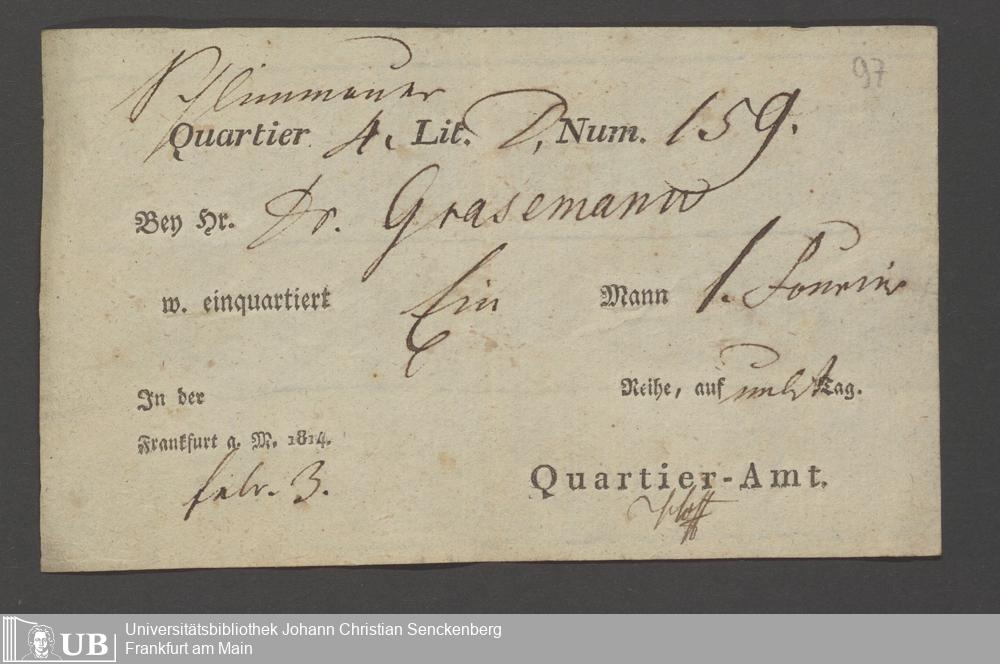 97
Quartier 4. Lit. D, Num. 159.
Bey Hr. Dr. Grasemann
w. einquartiert Ein Mann 1. Fourier
In der Reihe, auf unbst Tag.
Frankfurt a. M. 1814.
febr. 3.
Quartier-Amt.
UB
Universitätsbibliothek Johann Christian Senckenberg
Frankfurt am Main